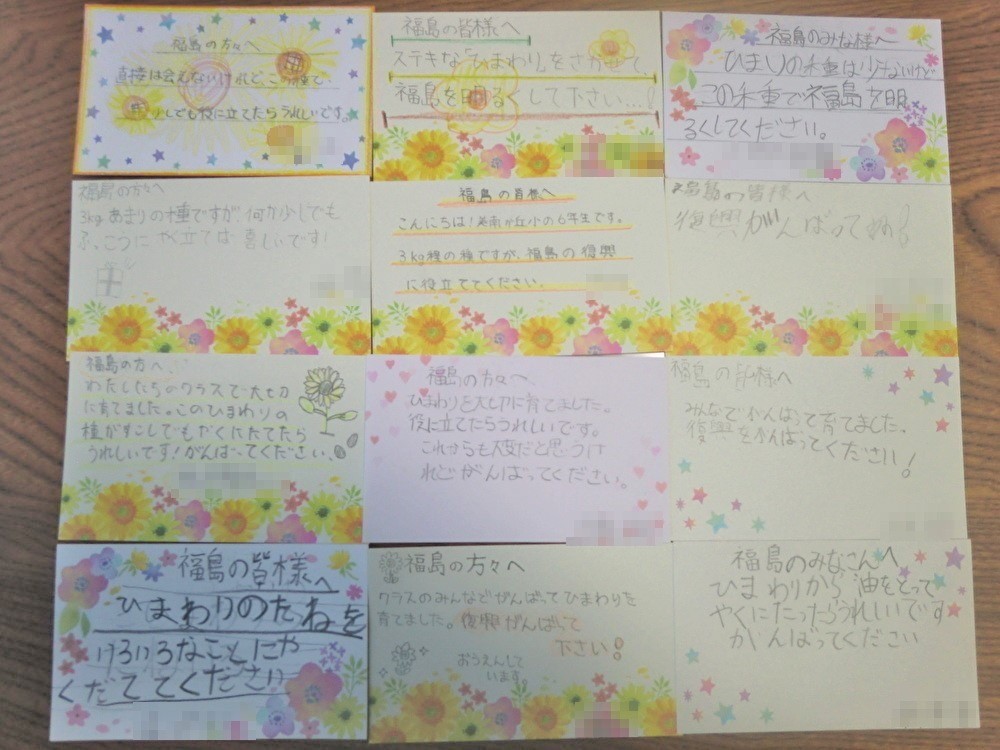 福島の方々へ
直接は会えないけれど、この種で、
少しでも役に立てたらうれしいです。
福島の皆様へ
ステキな「ひまわり」をさかせて、
福島を明るくして下さい…!
福島のみな様へ
ひまりの種は少ないけど
この種で福島を明
るくしてください。
福島の方々へ
3kgあまりの種ですが、何か少しでも
ふっこうに役立てば喜しいです!
福島の皆様へ
こんにちは!美南が丘小の6年生です。
3kg程の種ですが、福島の復興
に役立ててください。
福島の皆様へ
復興がんばってね!
福島の方へ
わたしたちのクラスで大切
に育てました。このひまわりの
種がすこしでもやくにたてたら
うれしいです!がんばってください。
福島の方々へ
ひまわりを大切に育てました。
役に立てたらうれしいです。
これからも大変だと思うけ
れどがんばってください。
福島の皆様へ
みんなでがんばって育てました。
復興をがんばってください!
福島の皆様へ
ひまわりのたねを
いろいろなことにや
くだててください
福島の方々へ
クラスのみんなとがんばってひまわりを
育てました。復興がんばって
下さい!
おうえんして
います。
福島のみなさんへ
ひまわりから油をとって
やくにたったらうれしいです
がんばってください